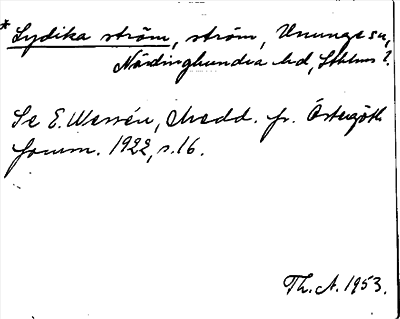 * Lydika ström, ström, Ununge sn,
Närdinghundra hd, Sthlms l.
Se E. Wessén, Medd. fr. Östergötl.
fornm. 1922, s. 16.
Th. A. 1953.